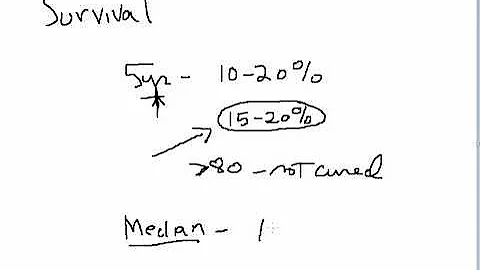 Survival
5yr - 10-20%
15-20%
>80 - not cured
Median - 1